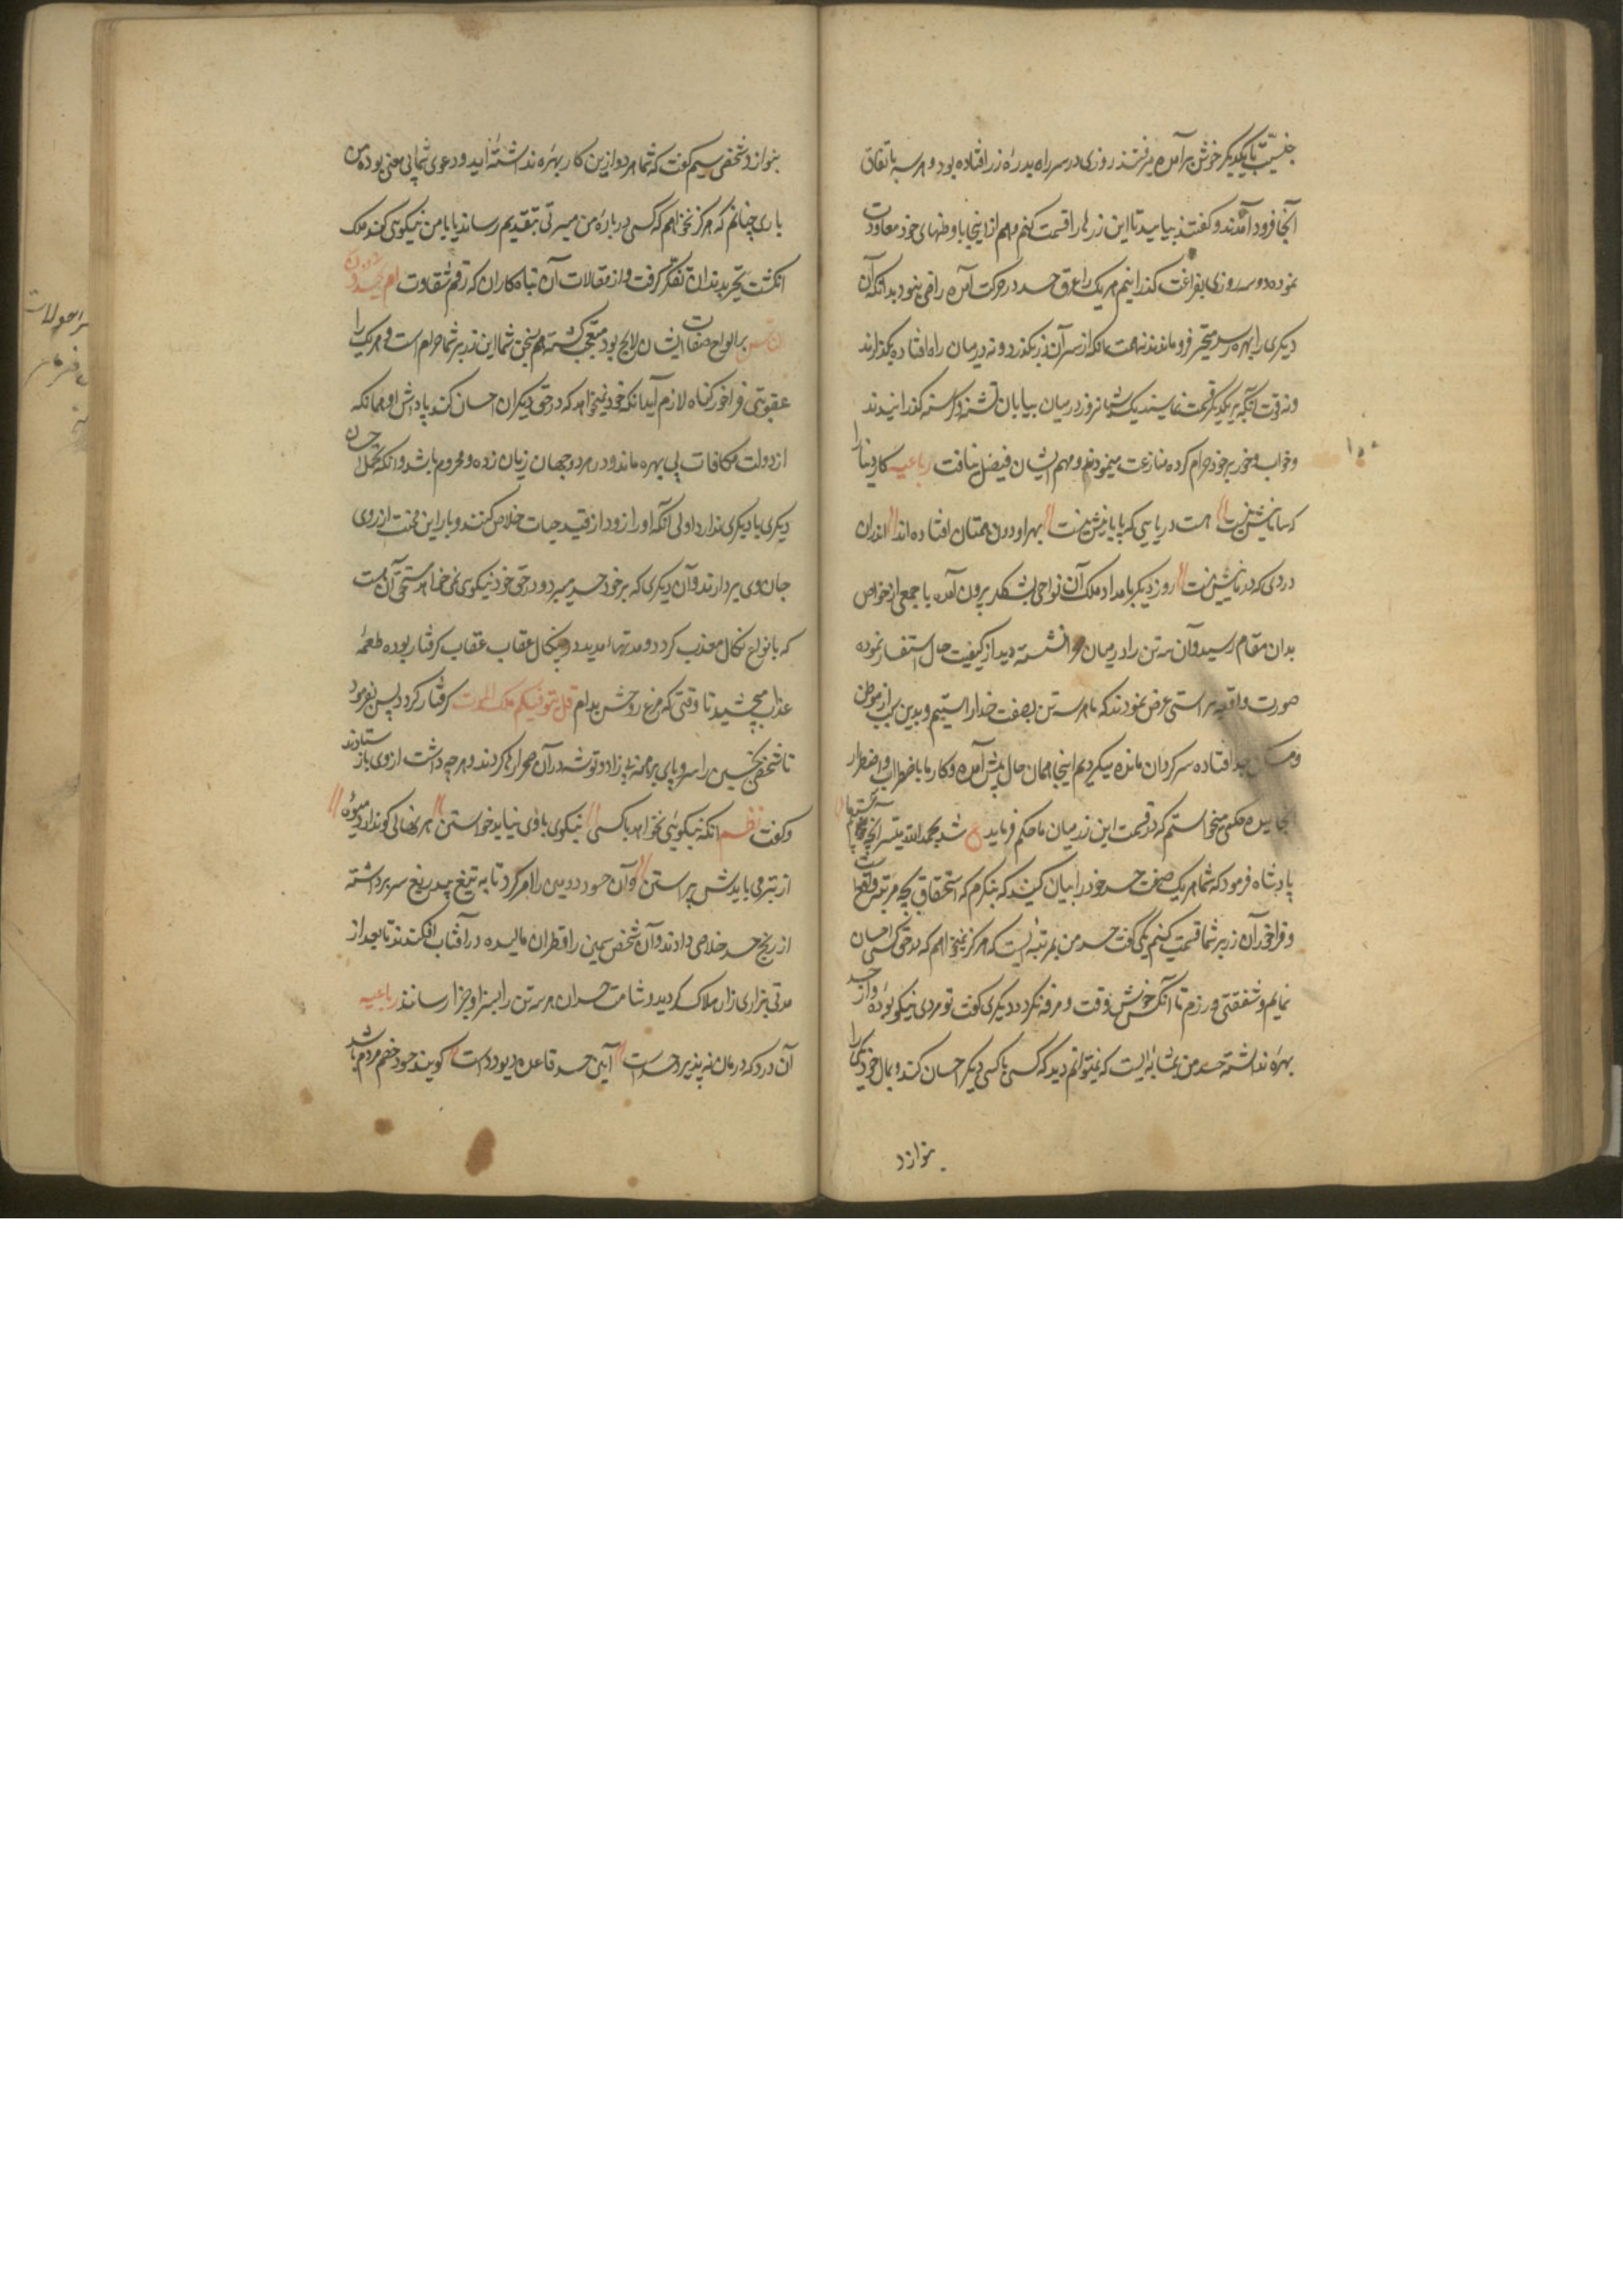 جنسیت با یکدیگر خوش برآمده میرفتند روزی در سر راه بدرهٔ زر افتاده بود و هر سه باتفاق
آنجا فرود آمدند و گفتند بیایید تا این زرها را قسمت کنیم و هم از اینجا با وطنهای خود معاودت
نموده دو سه روزی بفراغت گذرانیم هر یک را عرق حسد در حرکت آمده راضی نبود بدانکه آن
دیگری را بهره رسد متحیر فرو ماندند نه همت آنکه از سر آن زر بگذرند و نه در میان راه افتاده بگذارند
و نه قوت آنکه بر یکدیگر قسمت نمایند یک شبانروز در میان بیابان تشنه و گرسنه گذرانیدند
و خواب و خور بر خود حرام کرده منازعت مینمودند و مهم ایشان فیصل نیافت رباعیه کار دنیا را
که سامانیش نیست هست دریایی که پایانیش نیست بهر او دون همتان افتاده اند اندران
دردی که درمانیش نیست روز دیگر بامداد ملک آن نواحی بشکار بیرون آمده با جمعی از خواص
بدان مقام رسید و آن سه تن را در میان نشسته دید از کیفیت حال استفسار نموده
صورت واقعه براستی عرض نمودند که ما هر سه تن بصفت حسد آراستیم و بدین سبب از موطن
و مسکن جدا افتاده سرگردان مانده میگردیم اینجا همان حال پیش آمده و کار ما باضطراب و اضطرار
انجامیده حکمی میخواستیم که در قسمت این زر میان ما حکم فرماید ع شد بحمدالله میسر آنچه میخواستیم ما
پادشاه فرمود که شما هر یک صفت حسد خود را بیان کنید که بنگرم که استحقاق بچه مرتبه واقعست
و فراخور آن زر بر شما قسمت کنیم یکی گفت حسد من بمرتبه ایست که هرگز نمیخواهم که در حق کسی احسان
نمایم و شفقتی ورزم تا آنکس خوش وقت و مرفه نگردد دیگری گفت تو مردی نیکو بودهٔ و از حسد
بهرهٔ نداشتهٔ حسد من بمثابه ایست که نمیتوانم دید که کسی با کسی دیگر احسان کند و بمال خود دیگری را
بنوازد
بنوازد شخص سیم گفت که شما هر دو ازین کار بهرهٔ نداشته اید و دعوی شما بی معنی بوده من
باری چنانم که هرگز نخواهم که کسی دربارهٔ من مسرتی بتقدیم رساند یا با من نیکویی کند ملک
انگشت تحیر بدندان تفکر گرفت و از مقالات آن تباه کاران که رقم شقاوت ام یحسدون
الناس بر الواح صفات ایشان لایح بود متعجب گشته گفت هم بسخن شما این زر بر شما حرام است و هر یک را
عقوبتی فراخور گناه لازم آید آنکه خود نمیخواهد که در حق دیگران احسان کند پاداش او همانکه
از دولت مکافات بی بهره ماند و در هر دو جهان زیان زده و محروم باشد و آنکه تحمل احسان
دیگری با دیگری ندارد اولی آنکه او را زود از قید حیات خلاص کنند و بار این محنت از روی
جان وی بردارند و آن دیگری که بر خود حسد میبرد و در حق خود نیکویی نمی خواهد مستحق آن هست
که بانواع نکال معذب گردد و مدتها مدید در چنگال عقاب عقاب گرفتار بوده طعمه
عذاب میچشید تا وقتی که مرغ روحش بدام قل یتوفیکم ملک الموت گرفتار گردد پس بفرمود
تا شخص نخستین را سر و پای برهنه بی زاد و توشه در آن صحرا رها کردند و هر چه داشت از وی باز ستاندند
و گفت نظم آنکه نیکویی نخواهد با کسی نیکوی با وی نباید خواستن هر نهالی کو ندارد میوهٔ
از تبر می بایدش پیراستن و آن حسود دومین را امر کرد تا به تیغ بیدریغ سر برداشته
از رنج حسد خلاصی دادند و آن شخص سیمین را قطران مالیده در آفتاب افکندند تا بعد از
مدتی بزاری زار هلاک گردید و شامت حسد آن هر سه تن را بسزا و جزا رسانند رباعیه
آن درد که درمان نه پذیرد حسدست آیین حسد قاعده دیو و ددست گویند حسود خصم مردم باشد